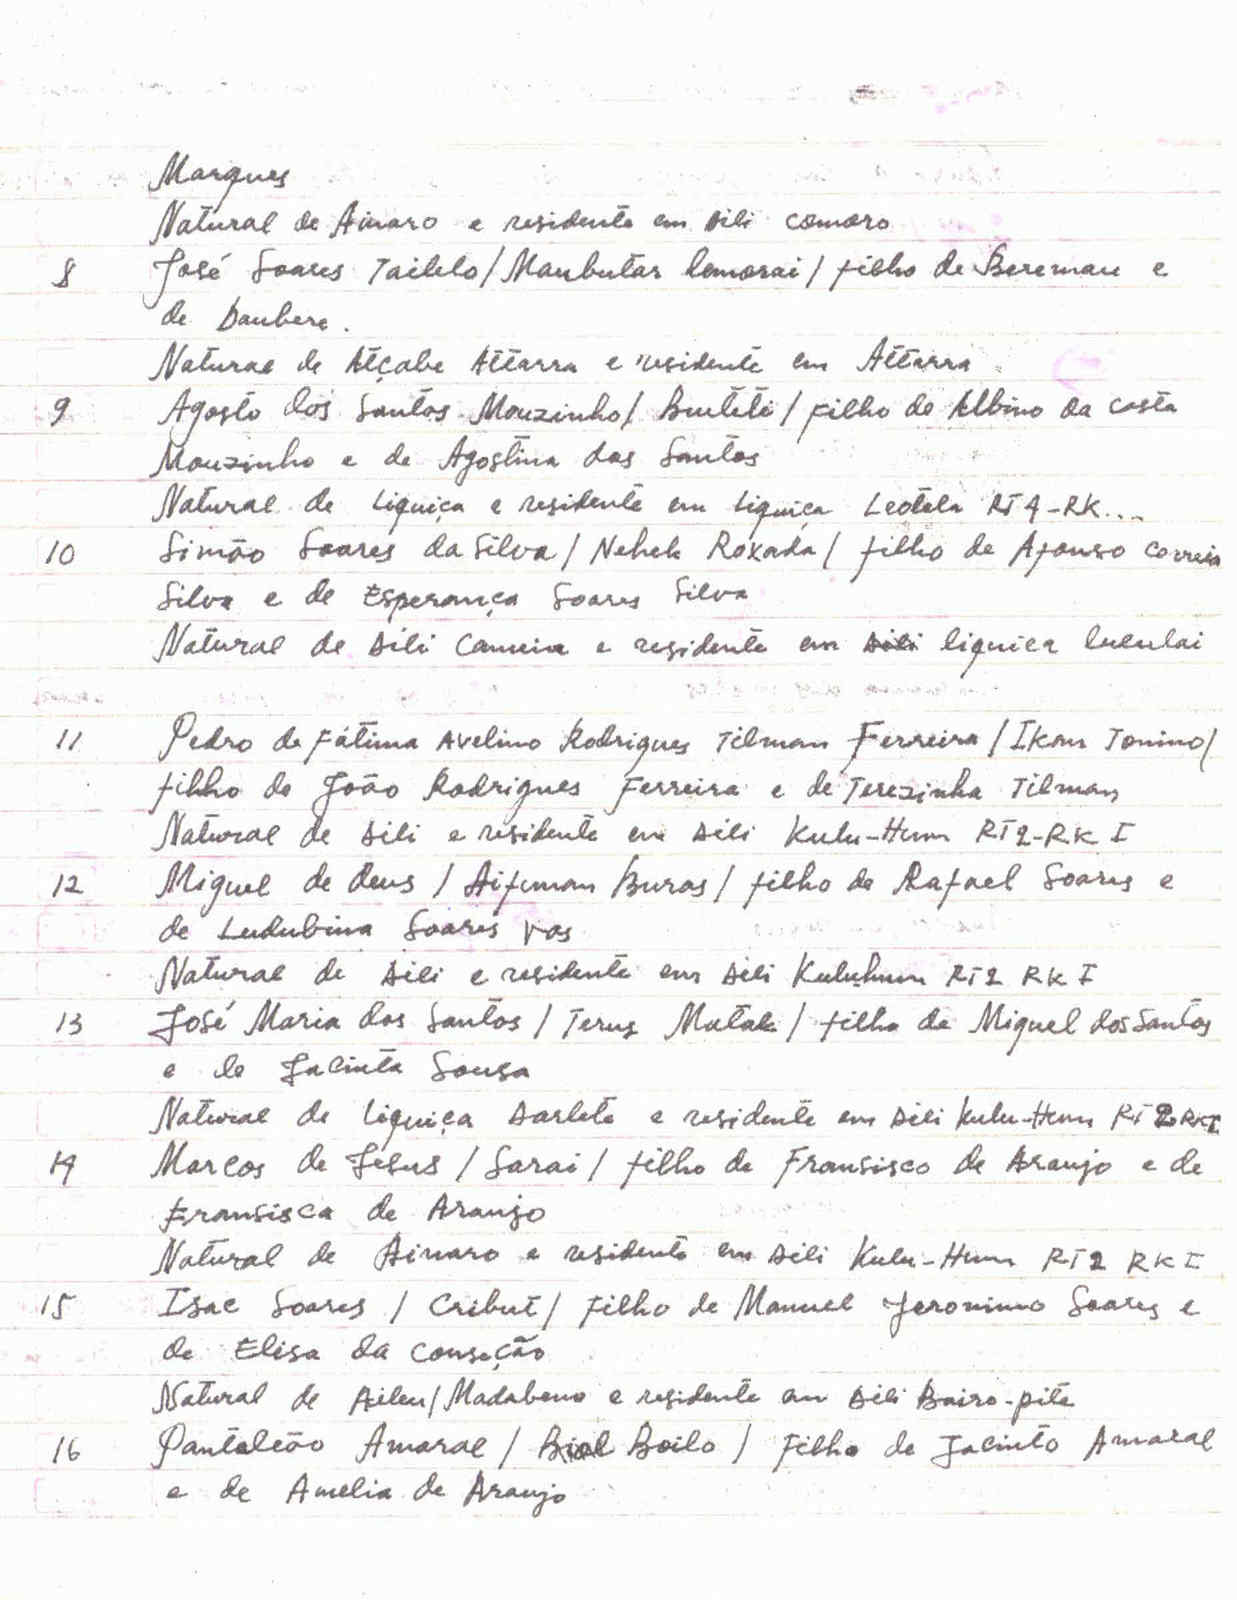 Marques
Natural de Ainaro e residente em Dili comoro
8 José Soares Tailelo / Maubutar lemorai / filho de Beremau e
de Daubere.
Natural de Atçabe Attarra e residente em Attarra
9 Agosto dos Santos Mouzinho / Buiteti / filho de Albino da costa
Mouzinho e de Agostina dos Santos
Natural de Liquiça e residente em Liquiça Leotela RT4-RK...
10 Simão Soares da Silva / Nehek Roxada / filho de Afonso correia
Silva e de Esperança Soares Silva
Natural de Dili Cameia e residente em liquica luculai
11 Pedro de Fátima Avelino Rodrigues Tilman Ferreira / Ikan Tonino /
filho de João Rodrigues Ferreira e de Terezinha Tilman
Natural de Dili e residente em Dili Kulu-Hum RT2-RK I
12 Miguel de deus / Aifuman Buras / filho de Rafael Soares e
de Ludubina Soares Vas
Natural de Dili e residente em Dili Kuluhum RT2 RK I
13 José Maria dos Santos / Terus Matak / filho de Miguel dos Santos
e de Jacinta Sousa
Natural de Liquiça Darlete e residente em Dili Kulu-Hum RT 2 RKI
14 Marcos de Jesus / Sarai / filho de Fransisco de Araujo e de
Fransisca de Araujo
Natural de Ainaro e residente em Dili Kulu-Hum RT2 RK I
15 Isac Soares / Cribut / Filho de Manuel Jeronimo Soares e
de Elisa da Conseção
Natural de Aileu / Madabeno e residente em Dili Bairo-pite
16 Pantaleão Amaral / Boilo / Filho de Jacinto Amaral
e de Amelia de Araujo